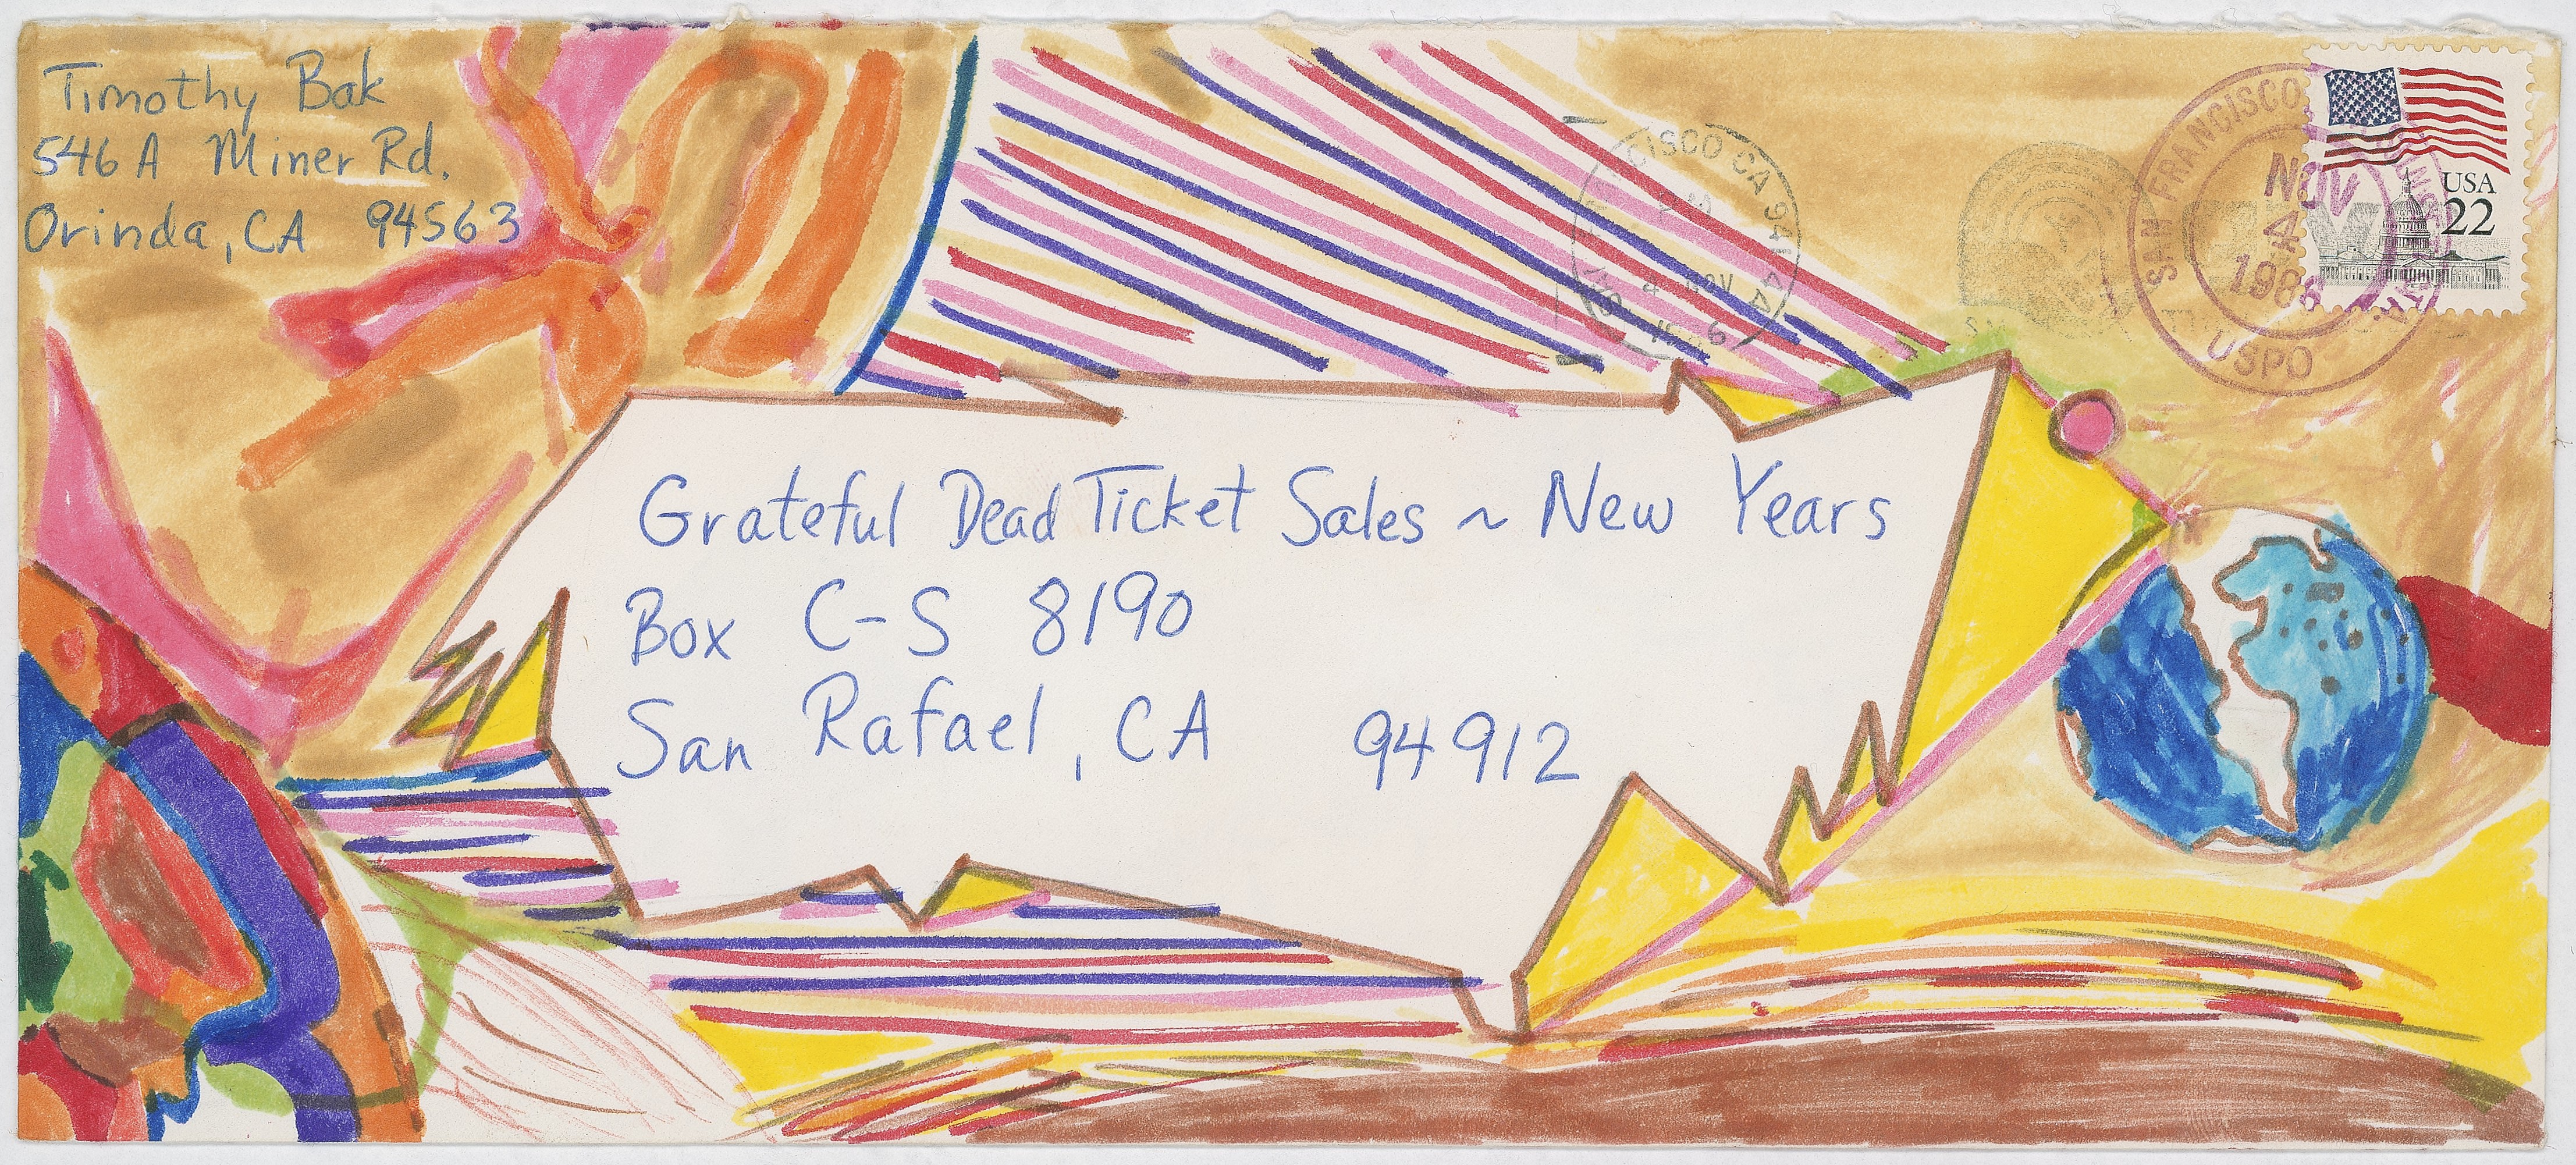 Timothy Bak
546 A Miner Rd.
Orinda, CA 94563
CISCO CA 941
4 NOV
SAN FRANCISCO
NOV
4
1986
USPO
USA
22
Grateful Dead Ticket Sales ~ New Years
Box C-S 8190
San Rafael, CA 94912